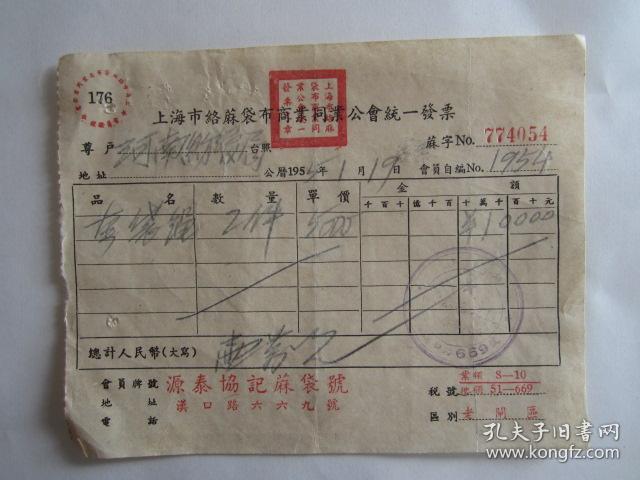 176
上海市絡蔴袋布商業同業公會統一發票
上海市絡蔴袋布商業同業公會統一發票章
尊戶 台照
蔴字No. 774054
地址
公曆195 年1月19日
會員自編No. 1954
品名 數量 單價 金額
千百十億千百十萬千百十元
蔴袋繩 2件 5000 ¥10000
總計人民幣(大寫) 壹萬元
會員牌號 源泰協記蔴袋號
地址 漢口路六六九號
電話
業類 8-10
税號 地類 51-669
區別 老閘區
孔夫子旧书网
www.kongfz.com